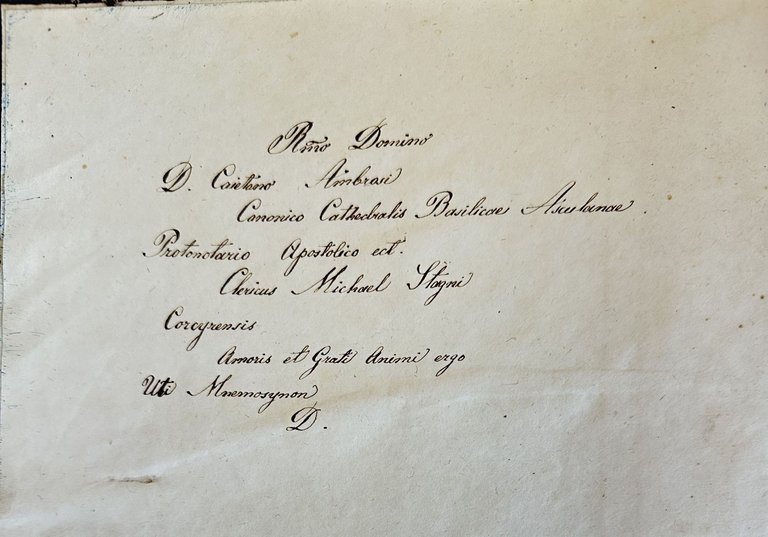 Rmo Domino
D. Caietano Ambrosi
Canonico Cathedralis Basilicae Asculanae.
Protonotario Apostolico ect.
Clericus Michael Stagni
Corcyrensis
Amoris et Grati Animi ergo
Uti Mnemosynon
D.